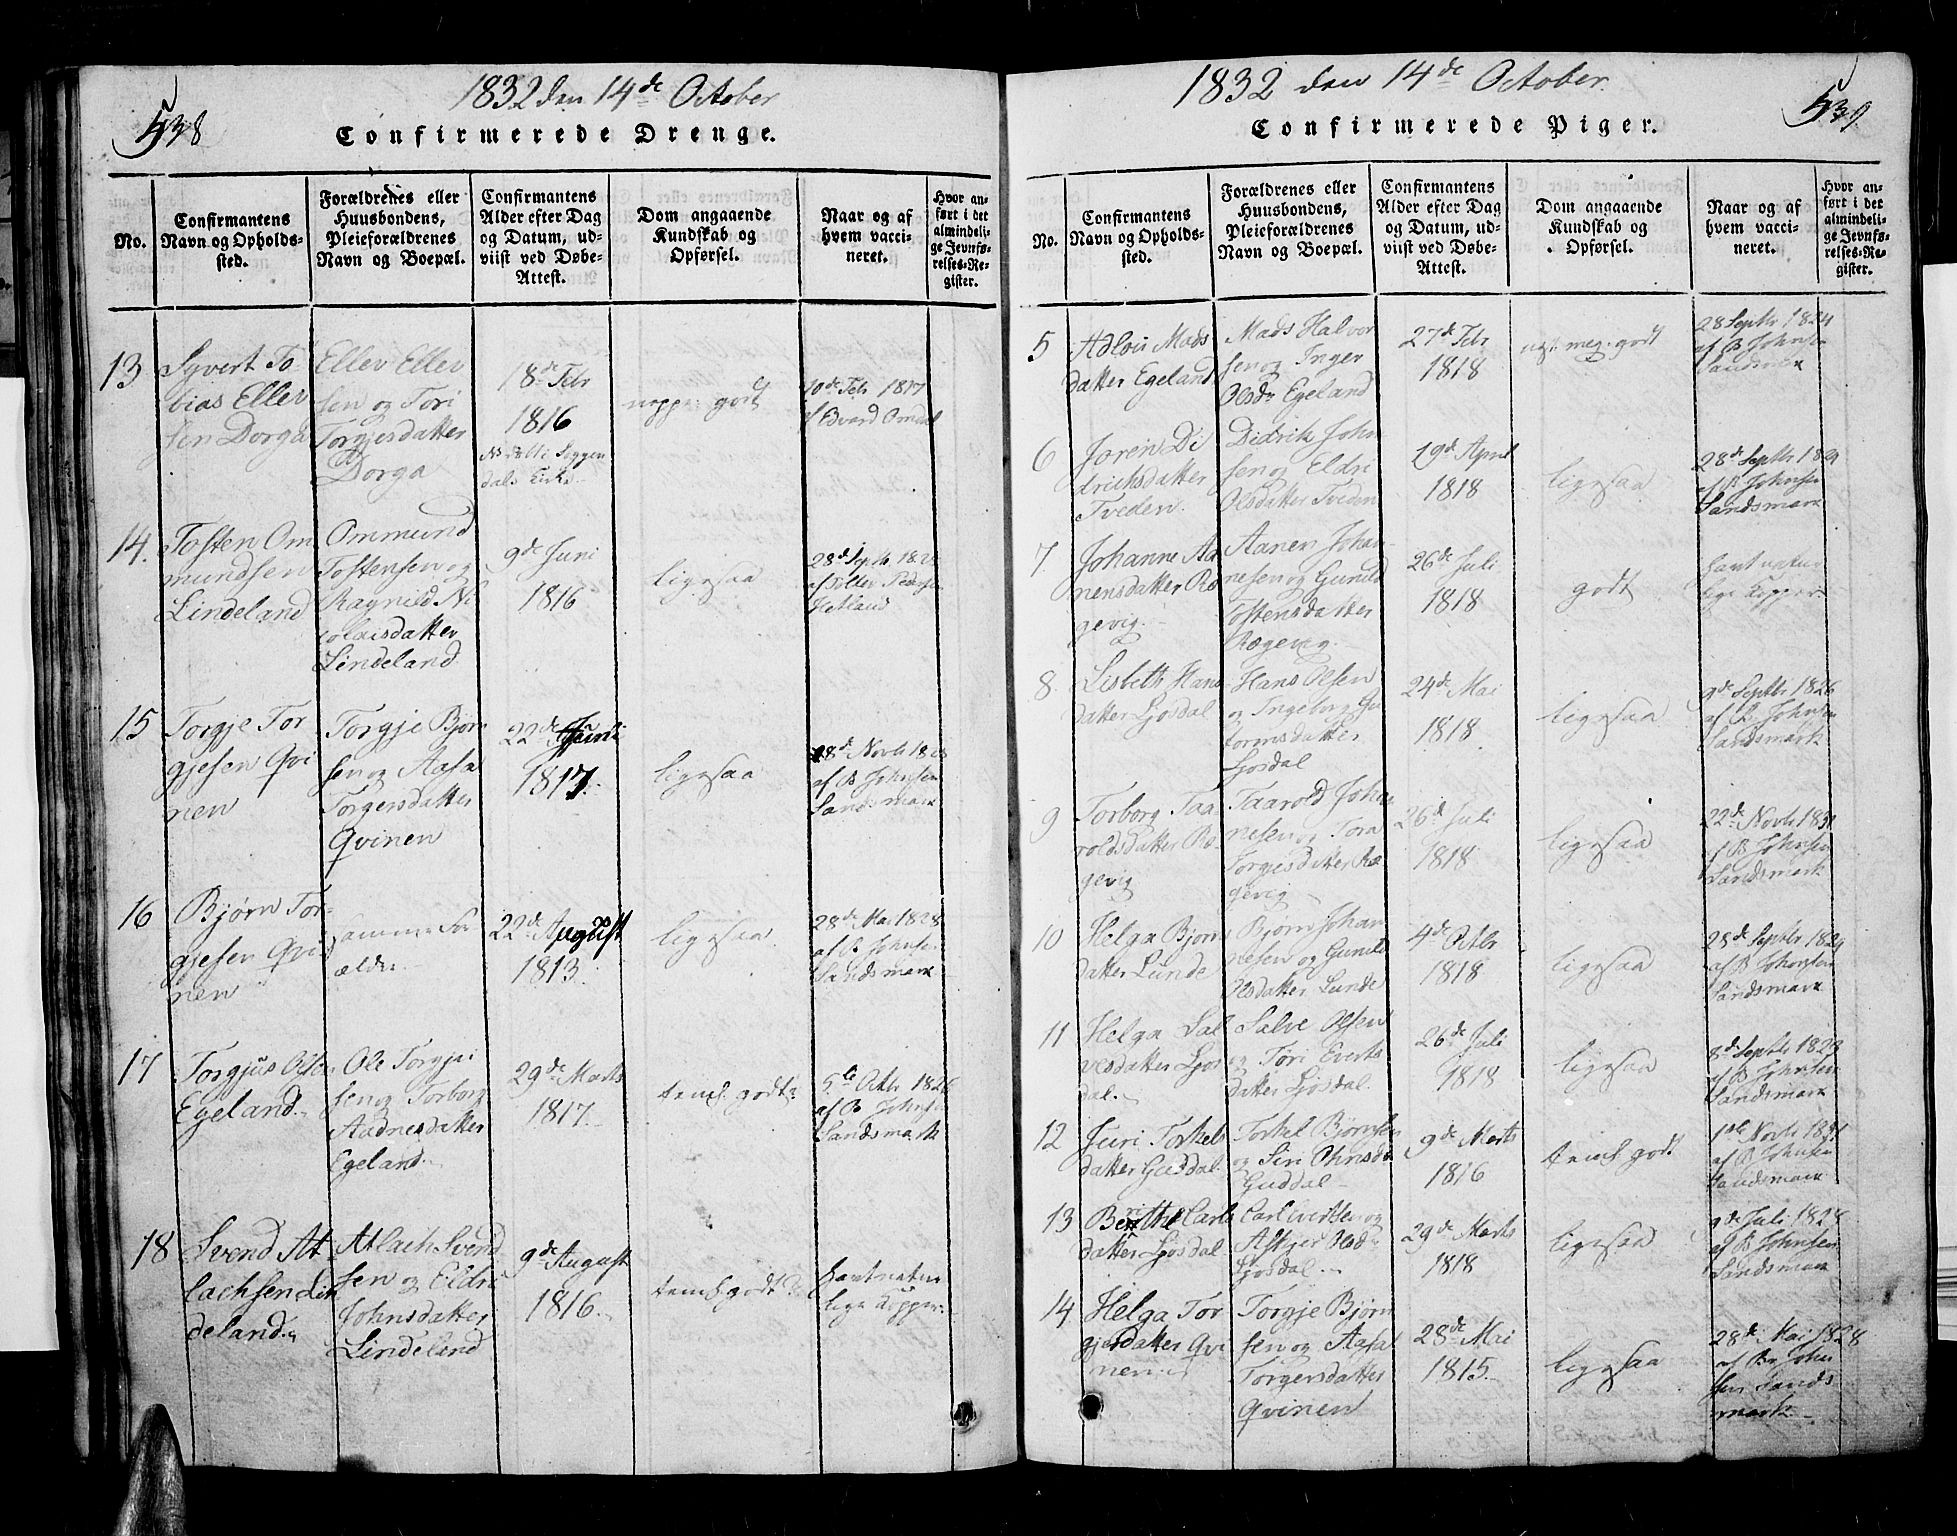 538
1832 den 14de October
Confirmerede Drenge.
No.
Confirmantens
Navn og Opholds-
sted.
Forældrenes eller
Huusbondens,
Pleieforældrenes
Navn og Boepæl.
Confirmantens
Alder efter Dag
og Datum, ud-
viist ved Døbe-
Attest.
Dom angaaende
Kundskab og
Opførsel.
Naar og af
hvem vacci-
neret.
Hvor an-
ført i det
almindeli-
ge Jevnfø-
relses-Re-
gister.
13
Syvert To-
bias Ellev
sen Dorga
Ellev Ellev
sen og Tori
Torgjesdatter
Dorga
18de Febr
1816
godt
10de Febr 1817
14.
Tosten Om
mundsen
Lindeland
Ommund
Tostensen og
Ragnild Ni
colaisdatter
Lindeland
9de Juni
1816
ligesaa
28de Septb
Hetland
15
Torgje Tor
gjesen Qvi
nen
Torgje Bjørn
sen og Aasa
Torgersdatter
Qvinen
22de Juni
1817.
ligesaa
28de Novb 1828
af B Johnsen
Sandsmark
16
Bjørn Tor-
gjesen Qvi
nen
samme For
ældre
22de August
1813.
ligesaa
28de Mai 1828
af B Johnsen
Sandsmark
17
Torgjus Olsen
Egeland.
Ole Torgju
sen og Torborg
Aadnesdatter
Egeland.
29de Marts
1817.
temf. godt
5te Octbr 1826
af B Johnsen
Sandsmark
18
Svend At
lachsen Lin
deland.
Atlach Svend
sen og Eldri
Johnsdatter
Lindeland
9de August
1816.
temf godt
havt natur
lige Kopper
539
1832 den 14de October.
Confirmerede Piger.
No.
Confirmantens
Navn og Opholds-
sted.
Forældrenes eller
Huusbondens,
Pleieforældrenes
Navn og Boepæl.
Confirmantens
Alder efter Dag
og Datum, ud-
viist ved Døbe-
Attest.
Dom angaaende
Kundskab og
Opførsel.
Naar og af
hvem vacci-
neret.
Hvor an-
ført i det
almindeli-
ge Jevnfø-
relses-Re-
gister.
5
Adlou Mads
datter Egeland
Mads Halvor
sen og Inger
Olsdr Egeland
27de Febr
1818
meg. godt
28 Septbr 1824
af B Johnsen
Sandsmark
6
Joren Di
drichsdatter
Tveden.
Didrik John
sen og Eldri
Olsdatter Tveden
19de April
1818
ligesaa
28de Septbr 1824
af B Johnsen
Sandsmark
7
Johanne Aa
nensdatter Ræ
gevig.
Aanen Johan
nesen og Gunild
Tostensdatter
Rægevig.
26de Juli
1818
godt
havt natur
lige Kopper
8
Lisbeth Hans
datter Ljosdal
Hans Olsen
og Ingeborg Gu
tormsdatter
Ljosdal
24de Mai
1818.
ligesaa
9de Septbr 1826
af B Johnsen
Sandsmark
9
Torborg Taa-
roldsdatter Ræ-
gevig
Taarold Johan
nesen og Tora
Torgjesdatter Ræ
gevig
26de Juli
1818
ligesaa
22de Novb 1831
af B Johnsen
Sandsmark
10
Helga Bjørns
datter Lunde
Bjørn Johan
nesen og Gunild
Olsdatter Lunde
4de Octbr
1818
ligesaa
28de Septbr 1824
af B Johnsen
Sandsmark
11
Helga Sal
vesdatter Ljos
dal.
Salve Olsen
og Tori Everts
datter Ljosdal.
26de Juli
1818
ligesaa
8de Septbr
af B Johnsen
Sandsmark
12
Juri Torkels
datter Guddal
Torkel Bjørnsen
og Siri
Guddal
9de Marts
1816
temf godt
1ste Novb 1831
af B Johnsen
Sandsmark
13
Carls
datter Ljosdal
Carl Evertsen og
Askjer Olsdr
Ljosdal.
29de Marts
1818
ligesaa
9de Juli 1828
af B Johnsen
Sandsmark
14
Helga Tor
gjesdatter Qvi
nen
Torgje Bjørn
sen og Aasa
Torgersdatter
Qvinen
28de Mai
1815.
ligesaa
28de Mai 1828
af Br John
sen Sands
mark